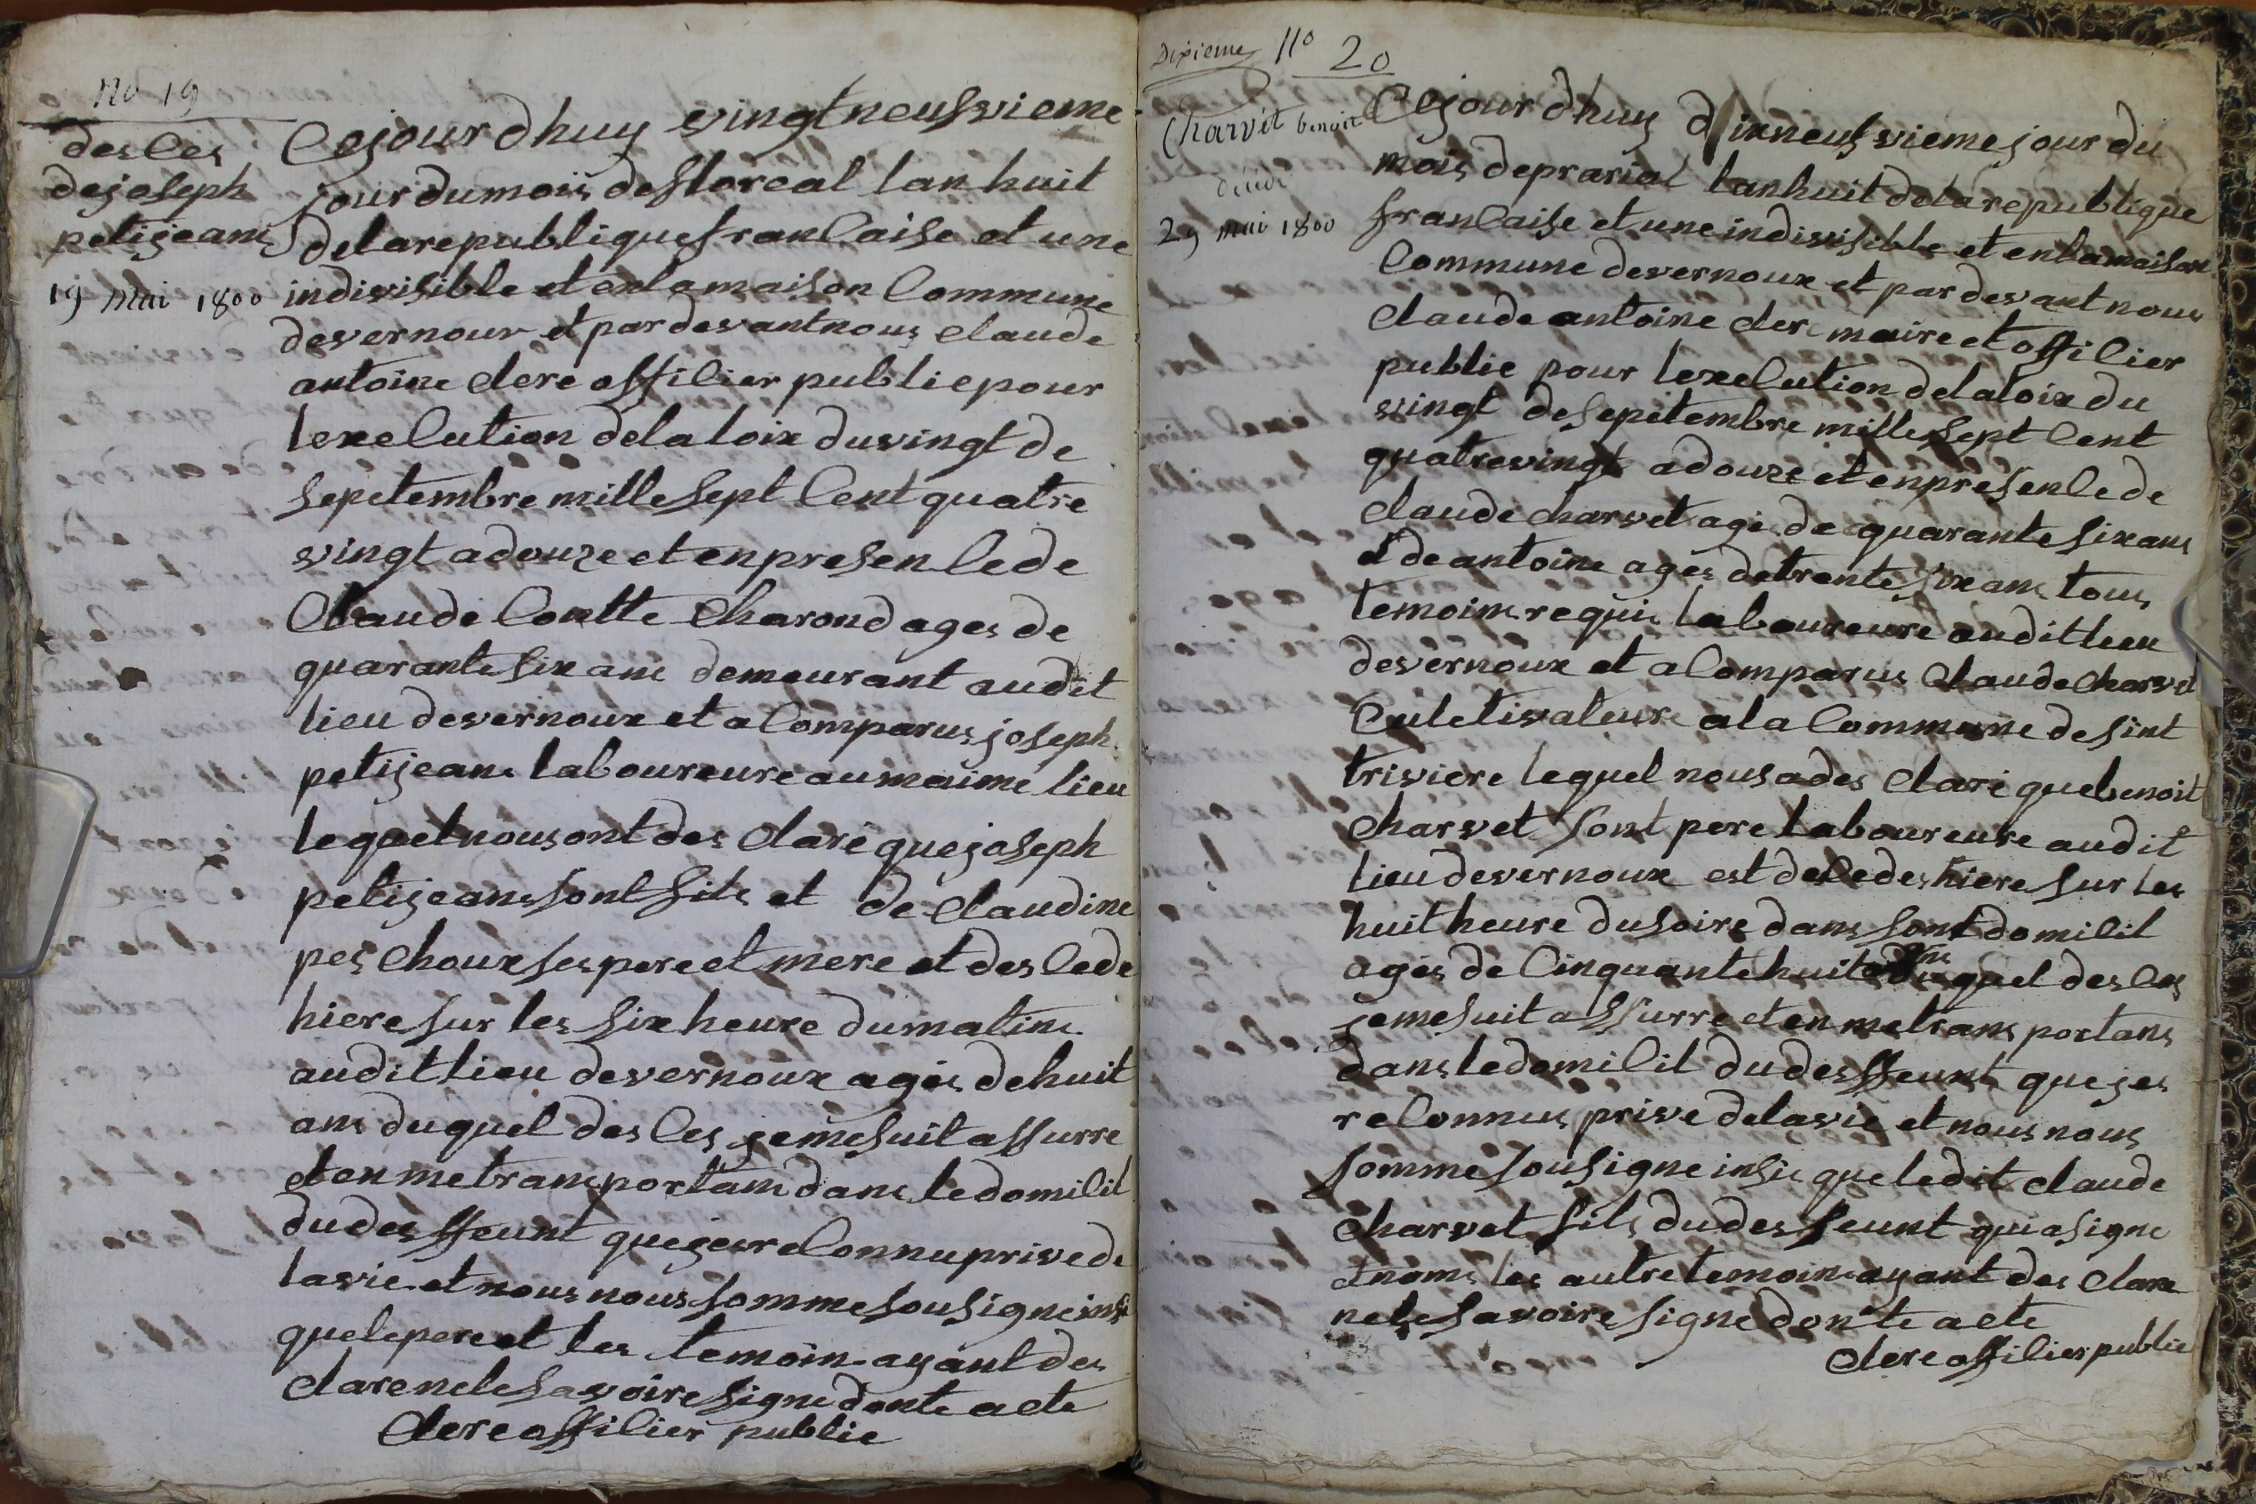 No 19
desces
dejoseph
petijeans
19 mai 1800
Cejour dhuy vingtneufvieme
jour du mois defloreal lan huit
delarepublique francaise et une
indivisible et enlamaison Commune
devernoux et pardevant nous claude
antoine clere officier publicpour
lexecution delaloix duvingt de
sepetembre mille sept Cent quatre
vingt adouze et enpresencede
Claude Coutte Charond ages de
quarante six ans demeurant audit
lieu devernoux et a Comparus joseph
petijeans laboureure aumaime lieu
lequel nousont des claré quejoseph
petijeans sont fils et de claudine
peschoux ses pere et mere et descede
hiere sur les six heure dumatins
audit lieu devernoux agés dehuit
ans duquel desces jemesuit assurre
et en metransportans dans ledomicil
dudesffeunt quejesreconnu privede
lavie et nous nous somme sousigneinsi
quelepere et les temoin ayant des
clare nele savoire signe donte acte
clere officier public
Dixieme
No 20
Charvet benoit
décédé
29 mai 1800
Cejour dhuy dixneufvieme jour du
mois deprarial lanhuit delarepublique
francaise et une indivisible et enlamaison
Commune devernoux et pardevant nous
claude antoine clere maire et officier
public pour lexecution delaloix du
vingt desepetembre mille sept Cent
quatrevingt adouze et enpresencede
claude charvet agé de quarante six ans
et de antoine agés detrente six ans tous
temoins requis laboureure audit lieu
devernoux et a Comparus claude charvet
Culetivateure ala Commune desint
triviere lequel nous ades claré quebenoit
charvet sont pere laboureure audit
lieu devernoux est decedes hiere sur les
huit heure dusoire dans sont domicil
agés de Cinquante huit ans duquel desces
jemesuit assurre et en metransportans
dans ledomicil dudesffeunt quejes
reconnus prive delavie et nous nous
somme sousigne insi que ledit claude
charvet fils dudesfeunt quasigne
et nom les autre temoins ayant des clare
nele savoire signe donte acte
clere officier public